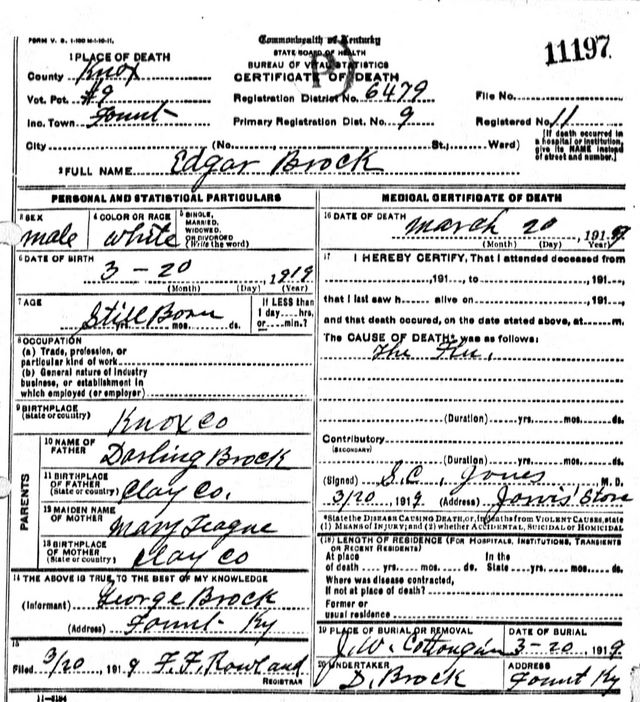 FORM V. S. 1-100 M-1-10-11.
Commonwealth of Kentucky
STATE BOARD OF HEALTH
BUREAU OF VITAL STATISTICS
CERTIFICATE OF DEATH
11197
1 PLACE OF DEATH
County Knox
Vot. Pct. #9
Inc. Town Fount
Registration District No. 6479
Primary Registration Dist. No. 9
File No.
Registered No. 11
City (No., St.; Ward)
(If death occurred in a hospital or institution, give its NAME instead of street and number.)
2 FULL NAME Edgar Brock
PERSONAL AND STATISTICAL PARTICULARS
3 SEX
male
4 COLOR OR RACE
white
5 SINGLE, MARRIED, WIDOWED, OR DIVORCED (Write the word)
6 DATE OF BIRTH
3 - 20 1919
(Month) (Day) (Year)
7 AGE
Still Born
yrs. mos. ds.
If LESS than 1 day......hrs. or......min.?
8 OCCUPATION
(a) Trade, profession, or particular kind of work
(b) General nature of industry business, or establishment in which employed (or employer)
9 BIRTHPLACE (State or country)
Knox Co
PARENTS
10 NAME OF FATHER
Darling Brock
11 BIRTHPLACE OF FATHER (State or country)
Clay Co.
12 MAIDEN NAME OF MOTHER
Mary Teague
13 BIRTHPLACE OF MOTHER (State or country)
Clay Co
14 THE ABOVE IS TRUE TO THE BEST OF MY KNOWLEDGE
(Informant) George Brock
(Address) Fount Ky
15
Filed 3/20 1919 F. F. Rowland
REGISTRAR
11-5184
MEDICAL CERTIFICATE OF DEATH
16 DATE OF DEATH
March 20 1919
(Month) (Day) (Year)
17 I HEREBY CERTIFY, That I attended deceased from
,191..., to ,191...,
that I last saw h...... alive on ,191...,
and that death occured, on the date stated above, at......m.
The CAUSE OF DEATH* was as follows:
The Flu.
(Duration) yrs. mos. ds.
Contributory
(SECONDARY)
(Duration) yrs. mos. ds.
(Signed) S.C. Jones M. D.
3/20, 1919 (Address) Store
*State the DISEASE CAUSING DEATH, or, in deaths from VIOLENT CAUSES, state (1) MEANS OF INJURY; and (2) whether ACCIDENTAL, SUICIDAL or HOMICIDAL
(18) LENGTH OF RESIDENCE (FOR HOSPITALS, INSTITUTIONS, TRANSIENTS OR RECENT RESIDENTS)
At place of death yrs. mos. ds. In the State yrs. mos. ds.
Where was disease contracted, If not at place of death?
Former or usual residence
19 PLACE OF BURIAL OR REMOVAL
J. W. Cottongim
DATE OF BURIAL
3-20 1919
20 UNDERTAKER
D. Brock
ADDRESS
Fount Ky